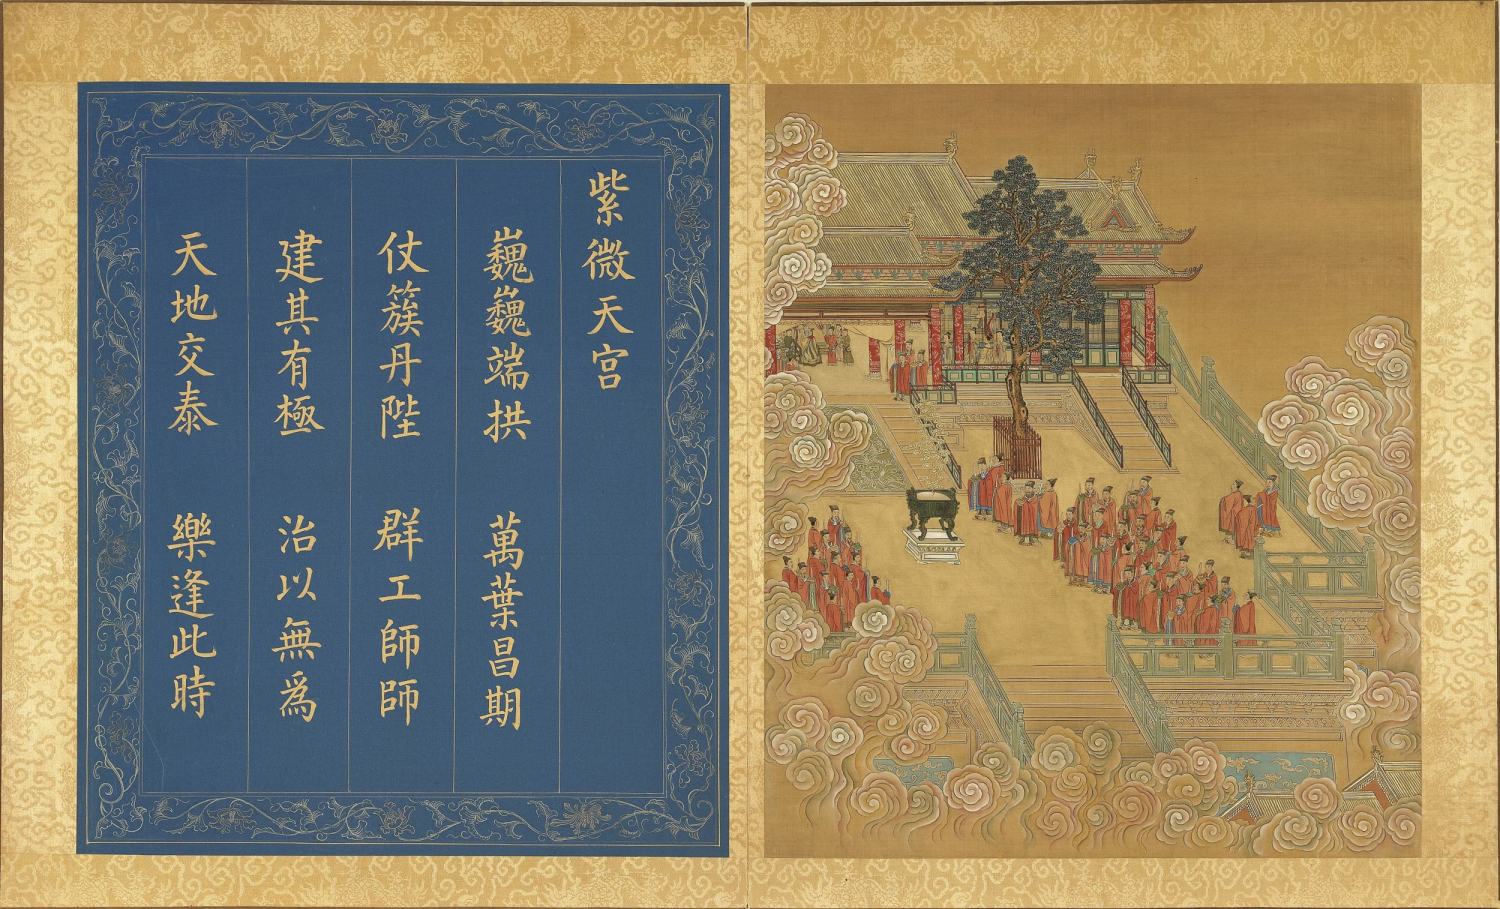 紫微天宮
巍巍端拱 萬葉昌期
仗簇丹陛 群工師師
建其有極 治以無爲
天地交泰 樂逢此時